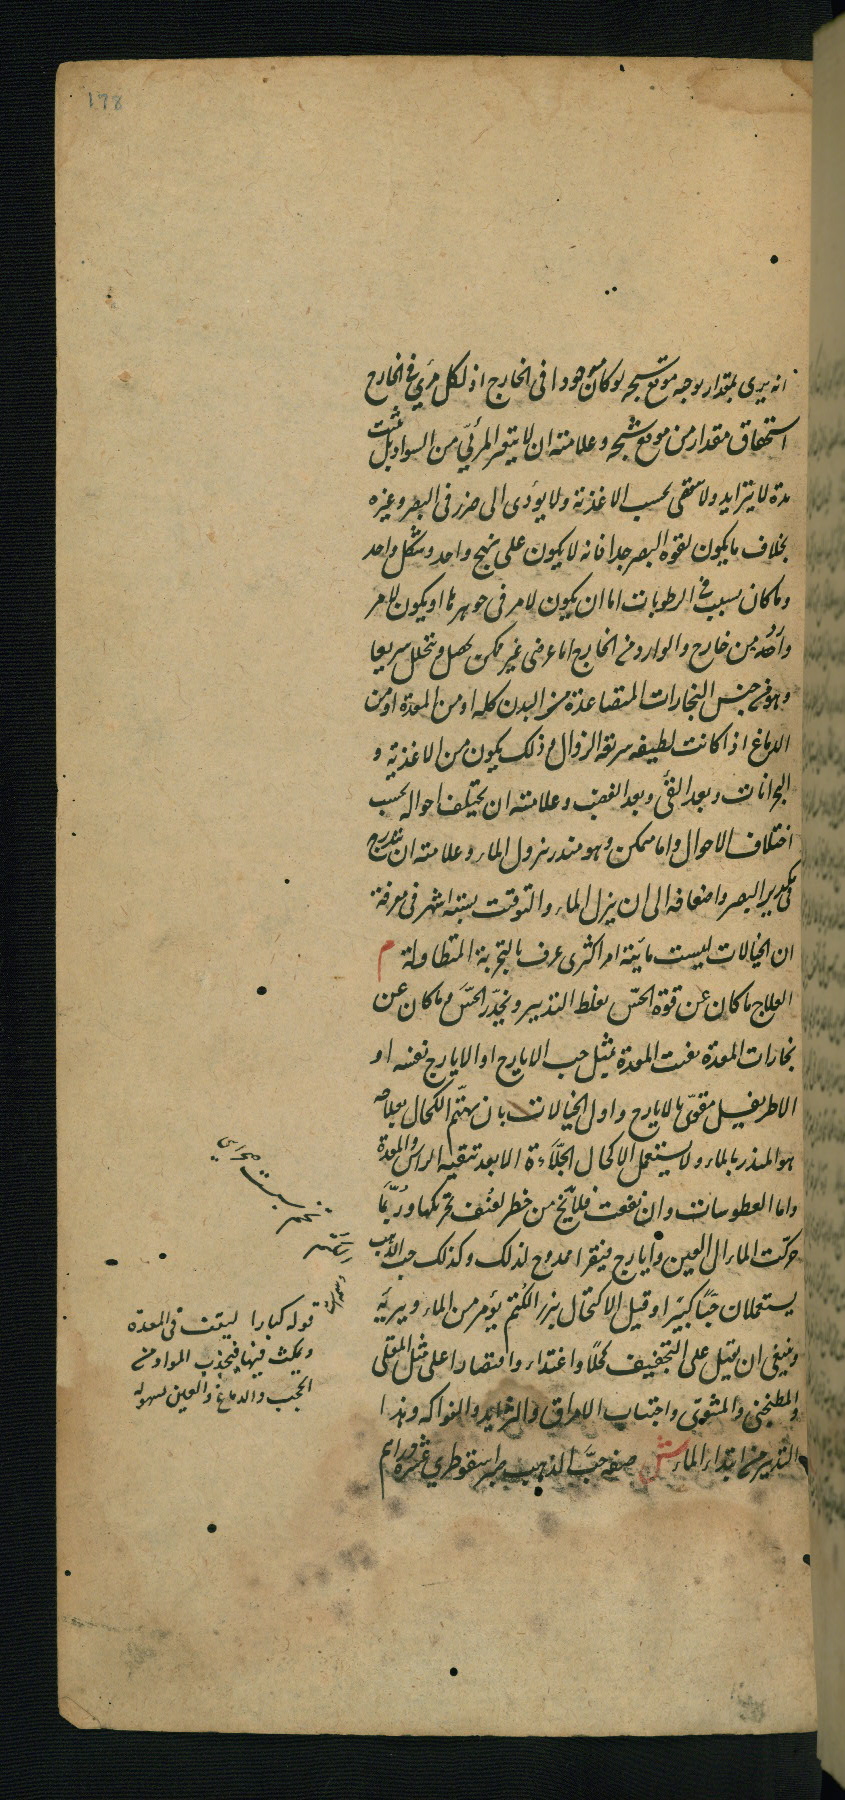 178
انه يرى بمقدار يوجه موقع شبحه لو كان موجودا فى الخارج اذ لكل مرئي فى الخارج
استحقاق مقدار من موقع شبحه وعلامته ان لا يتغير المرئي من السواد بل يثبت
مدة لا يتزايد ولا ينتقص بحسب الاغذية ولا يؤدى الى ضرر فى البصر وغيره
بخلاف ما يكون لقوة البصر جدا فانه لا يكون على نهج واحد وشكل واحد
وما كان بسبب فى الرطوبات اما ان يكون لامر فى جوهرها او يكون لامر
وارد من خارج والوارد من الخارج اما عرضى غير ممكن يحصل ويتحلل سريعا
وهو من جنس البخارات المتصاعدة من البدن كله او من المعدة او من
الدماغ اذا كانت لطيفه سريعة الزوال وذلك يكون من الاغذية و
البحرانات وبعد القئ وبعد الغضب وعلامته ان يختلف احواله بحسب
اختلاف الاحوال واما ممكن وهو منذر بنزول الماء وعلامته ان يتدرج
فى تكدير البصر واضعافه الى ان ينزل الماء والتوقيت بستة اشهر فى معرفة
ان الخيالات ليست مائية امر اكثرى عرف بالتجربة المتطاولة م
العلاج ما كان عن قوة الحسّ يغلظ التدبير ويخدّر الحسّ وما كان عن
بخارات المعدة نقيت المعدة بمثل حب الايارج او الايارج نفسه او
الاطريفيل مقوّى بالايارج واول الخيالات بان يهتم الكحال بعلاجه
هو المنذر بالماء ولا يستعمل الاكحال الجلّاءة الا بعد تنقية الراس والمعدة
واما العطوسات وان نفعت فلا يخ من خطر لعنف تحريكها وربّما
حركت الماء الى العين وايارج فيقرا ممدوح لذلك وكذلك حب الذهب
يستعملان حبًا كبيرا وقيل الاكتحال ببزر الكتم يؤمن من الماء ويبريه
وينبغى ان يقبل على التجفيف كحلًا واغتذاء واقتصارا على مثل المقلى
والمطجنى والمشوىّ واجتناب الامراق والثرايد والفواكه وهذا
التدبير من ابتداء الماء ش صفة حبّ الذهب صبر اسقوطري عشرة دراهم
قوله كبارا ليبقى فى المعدة
ويمكث فيها فيجذب المواد من
الحجب والدماغ والعين بسهوله